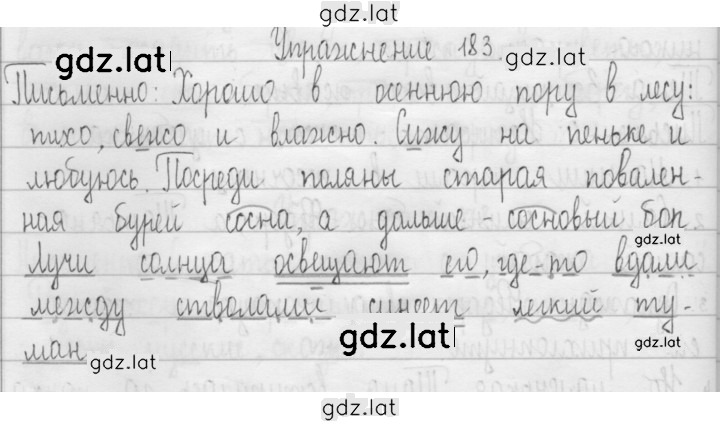 gdz.lat
Упражнение 183.
gdz.lat
gdz.lat
Письменно: Хорошо в осеннюю пору в лесу:
тихо, свежо и влажно. Сижу на пеньке и
любуюсь. Посреди поляны старая повален-
ная бурей сосна, а дальше - сосновый бор.
gdz.lat
Лучи солнца освещают его, где-то вдали
между стволами сизый легкий ту-
gdz.lat
gdz.lat
ман
gdz.lat
gdz.lat